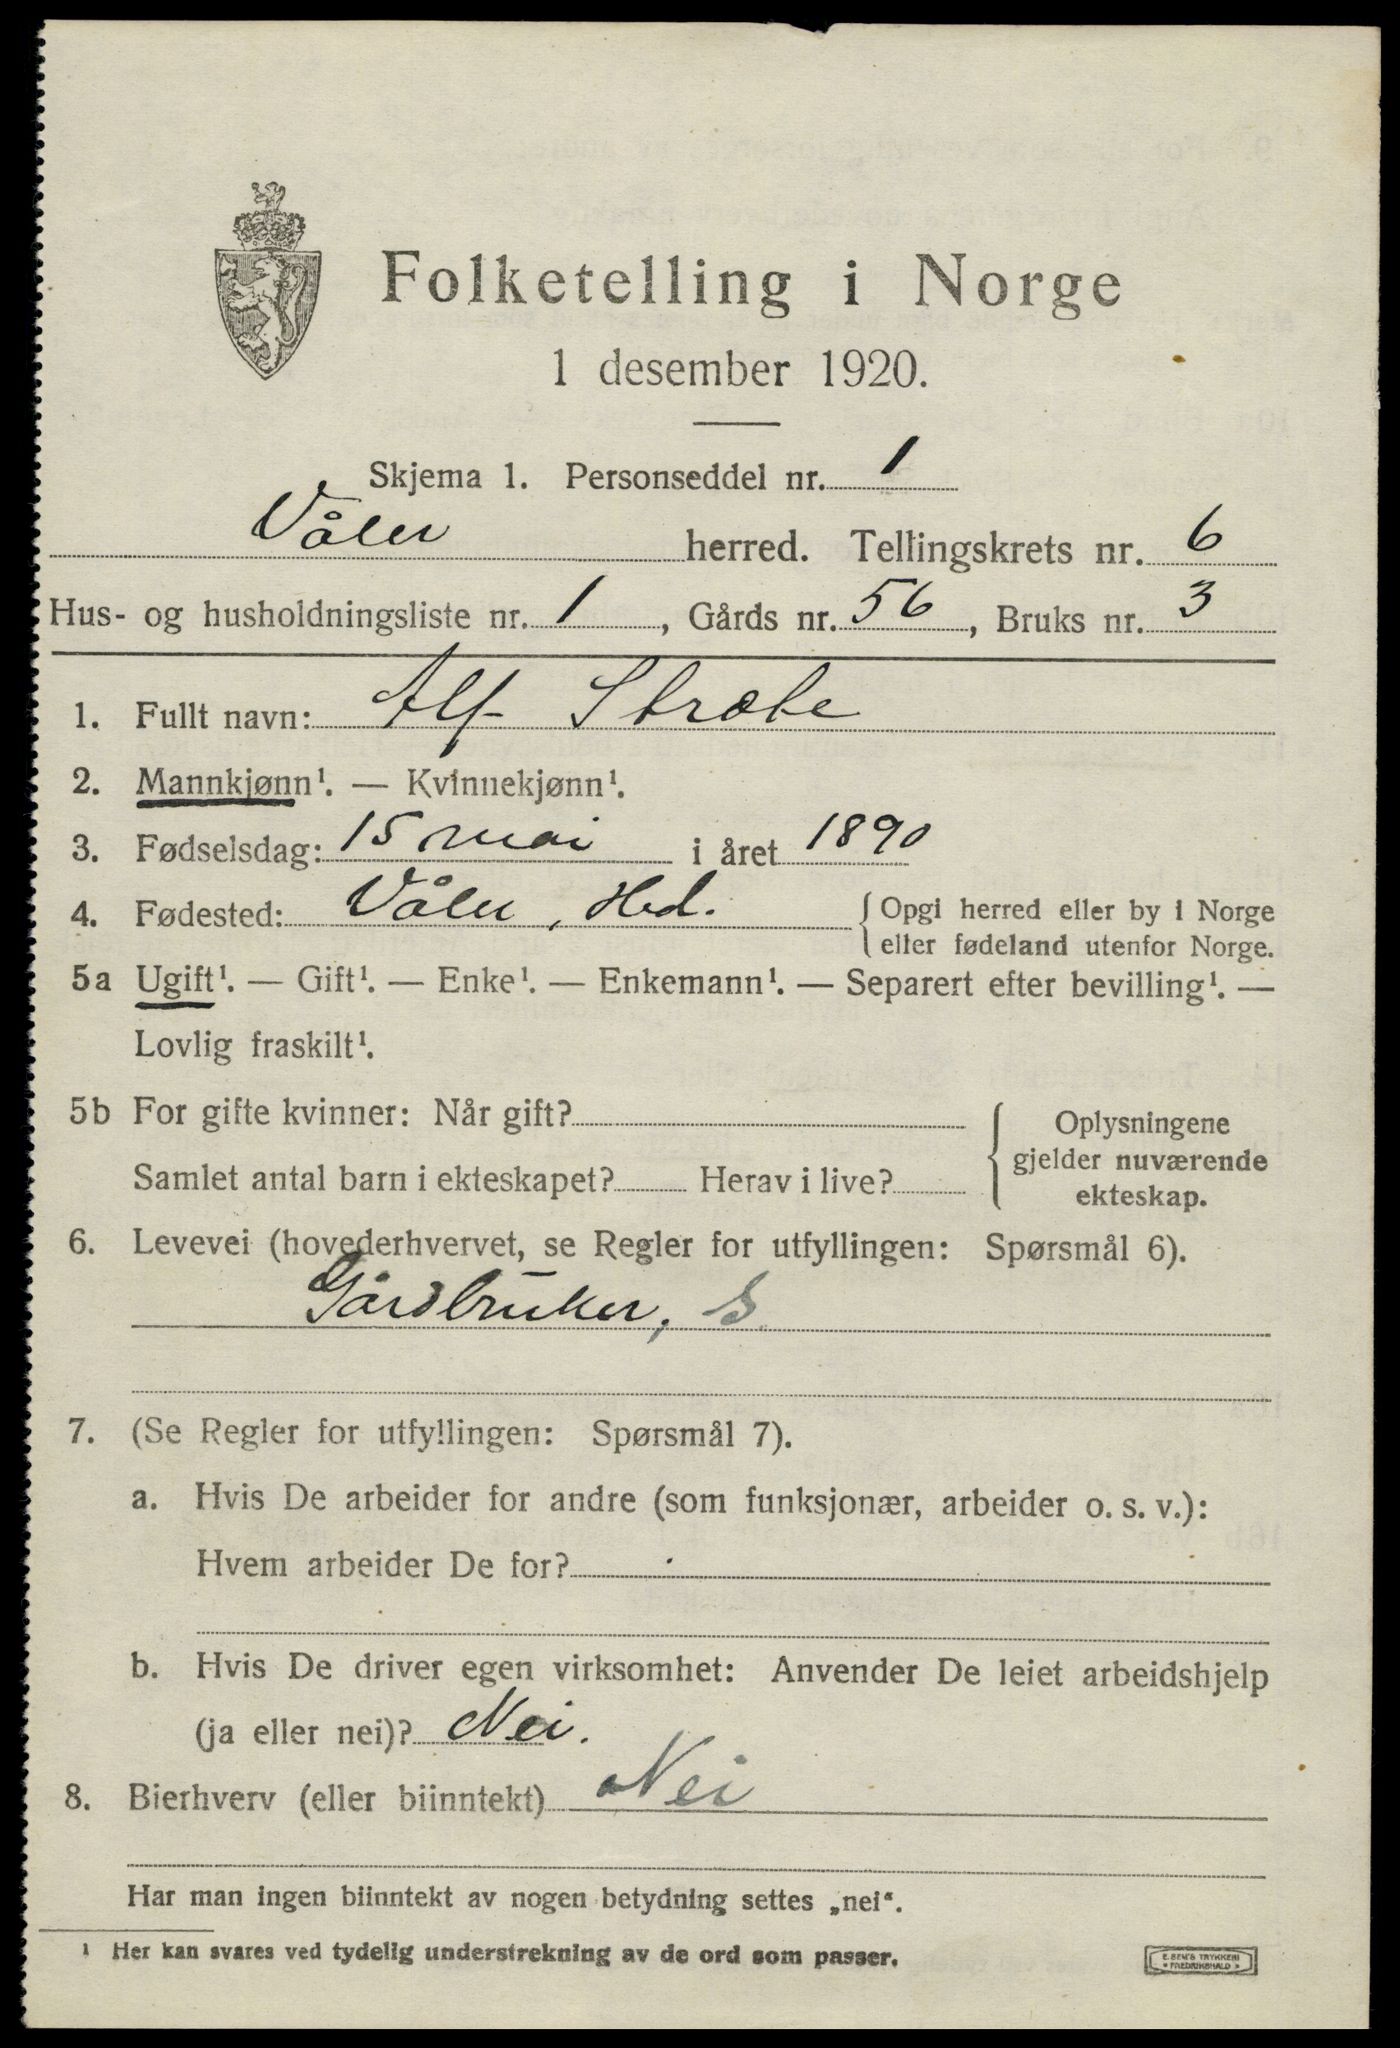 Folketelling i Norge
1 desember 1920.
Skjema 1. Personseddel nr. 1
Våler herred. Tellingskrets nr. 6
Hus- og husholdningsliste nr. 1, Gårds nr. 56, Bruks nr. 3
1. Fullt navn: Alf Stræte
2. Mannkjønn¹. — Kvinnekjønn¹.
3. Fødselsdag: 15 mai i året 1890
4. Fødested: Våler, Hed. { Opgi herred eller by i Norge
eller fødeland utenfor Norge.
5a Ugift¹. — Gift¹. — Enke¹. — Enkemann¹. — Separert efter bevilling¹. —
Lovlig fraskilt¹.
5b For gifte kvinner: Når gift?
Samlet antal barn i ekteskapet? Herav i live?
{ Oplysningene
gjelder nuværende
ekteskap.
6. Levevei (hovederhvervet, se Regler for utfyllingen: Spørsmål 6).
Gårdbruker, S.
7. (Se Regler for utfyllingen: Spørsmål 7).
a. Hvis De arbeider for andre (som funksjonær, arbeider o. s. v.):
Hvem arbeider De for?
b. Hvis De driver egen virksomhet: Anvender De leiet arbeidshjelp
(ja eller nei)? Nei.
8. Bierhverv (eller biinntekt) Nei
Har man ingen biinntekt av nogen betydning settes „nei“.
¹ Her kan svares ved tydelig understrekning av de ord som passer.
E. SEM'S TRYKKERI
• FREDRIKSHALD •